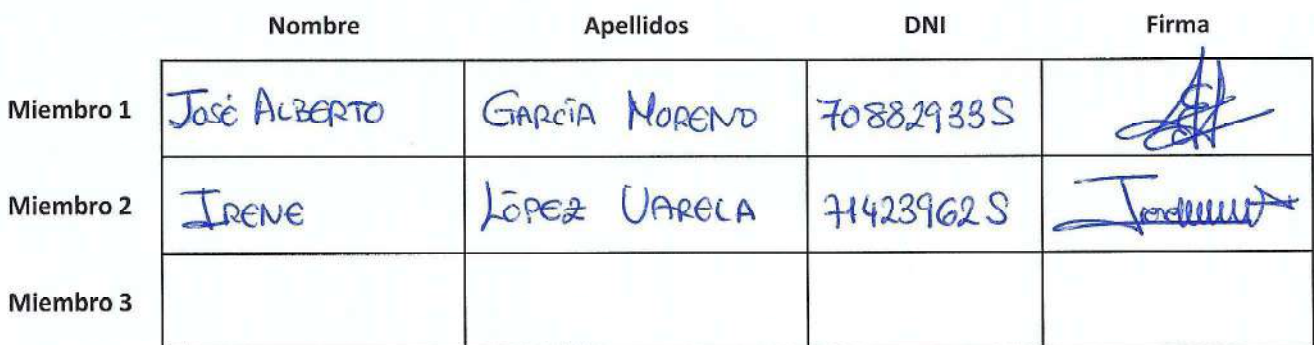 Nombre Apellidos DNI Firma
Miembro 1 JOSÉ ALBERTO GARCÍA MORENO 70882933S
Miembro 2 IRENE LÓPEZ VARELA 71423962S
Miembro 3